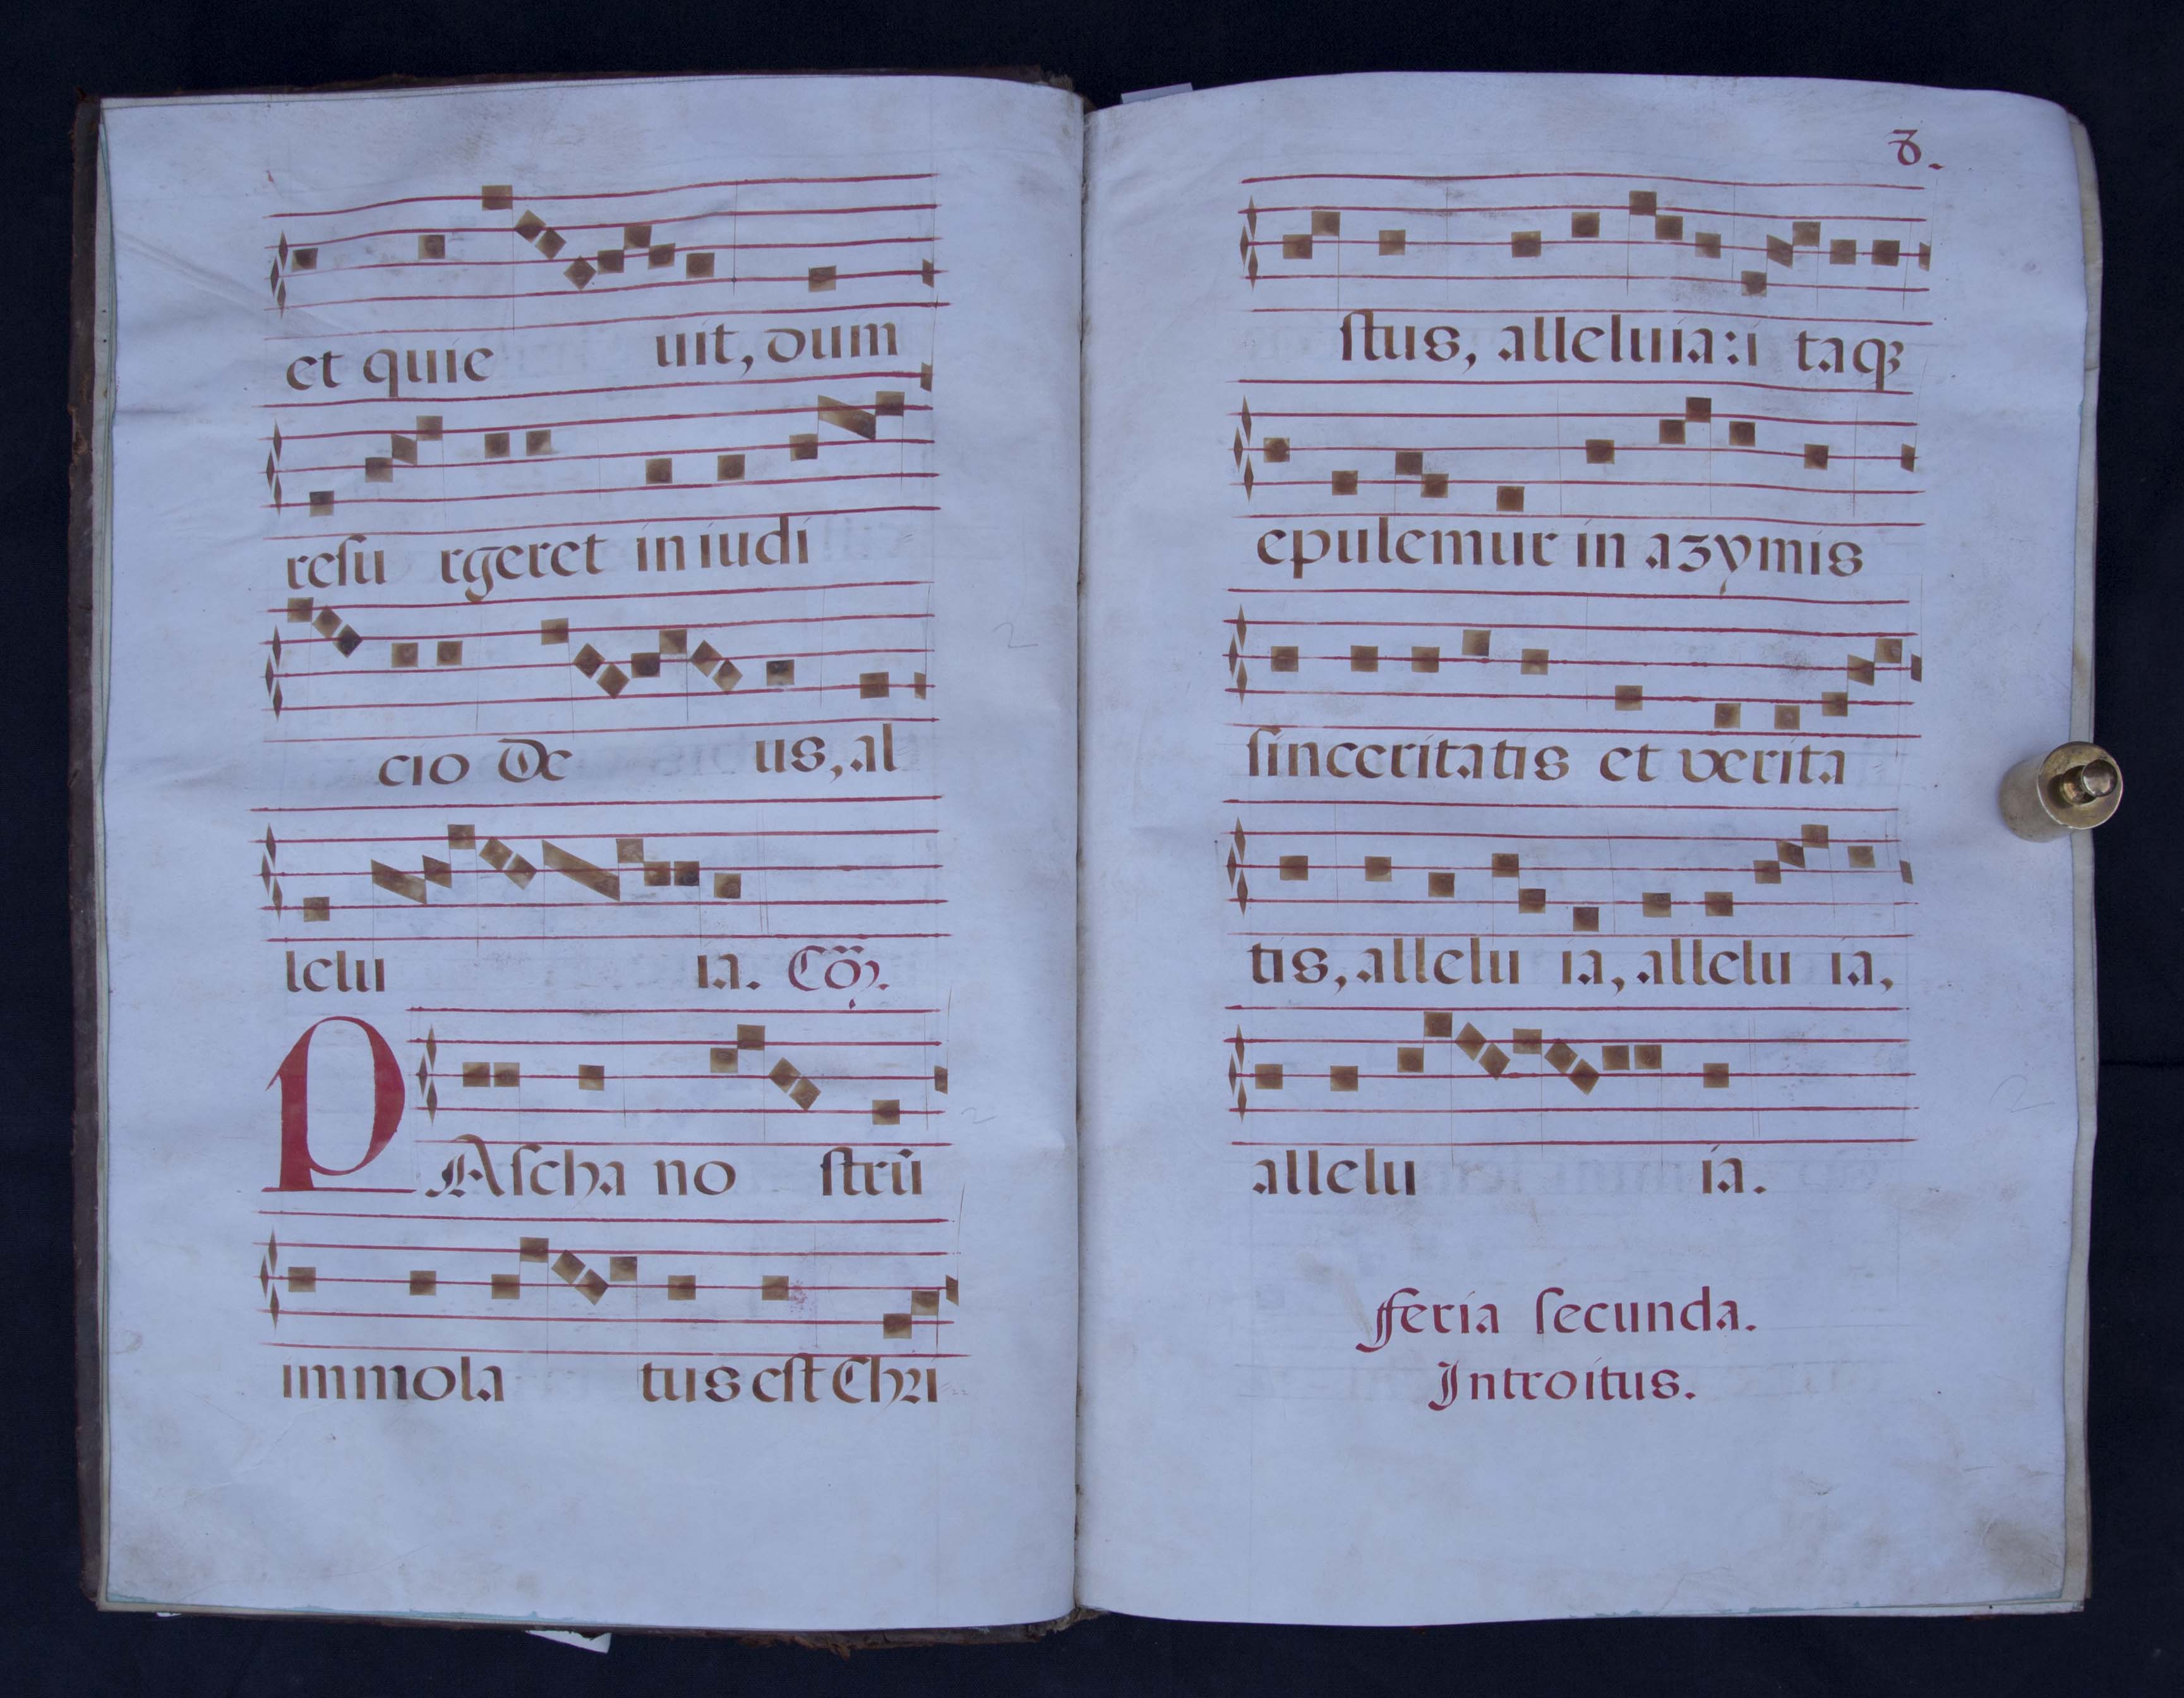 et quie uit, dum
resu rgeret in iudi
cio De us, al
lelu ia. Cōȝ.
PAscha no strū
immola tus est Chri
8.
stus, alleluia: i taqꝫ
epulemur in azymis
sinceritatis et verita
tis, allelu ia, allelu ia,
allelu ia.
Feria secunda.
Introitus.